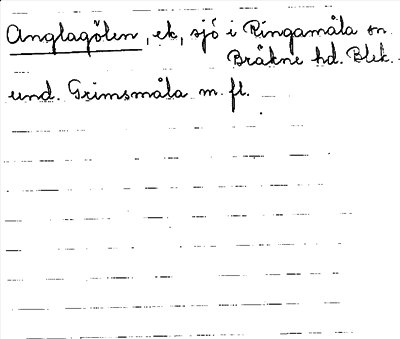 Anglagölen, ek, sjö i Ringamåla sn
Bråkne hd. Blek.
und. Grimsmåla m. fl.